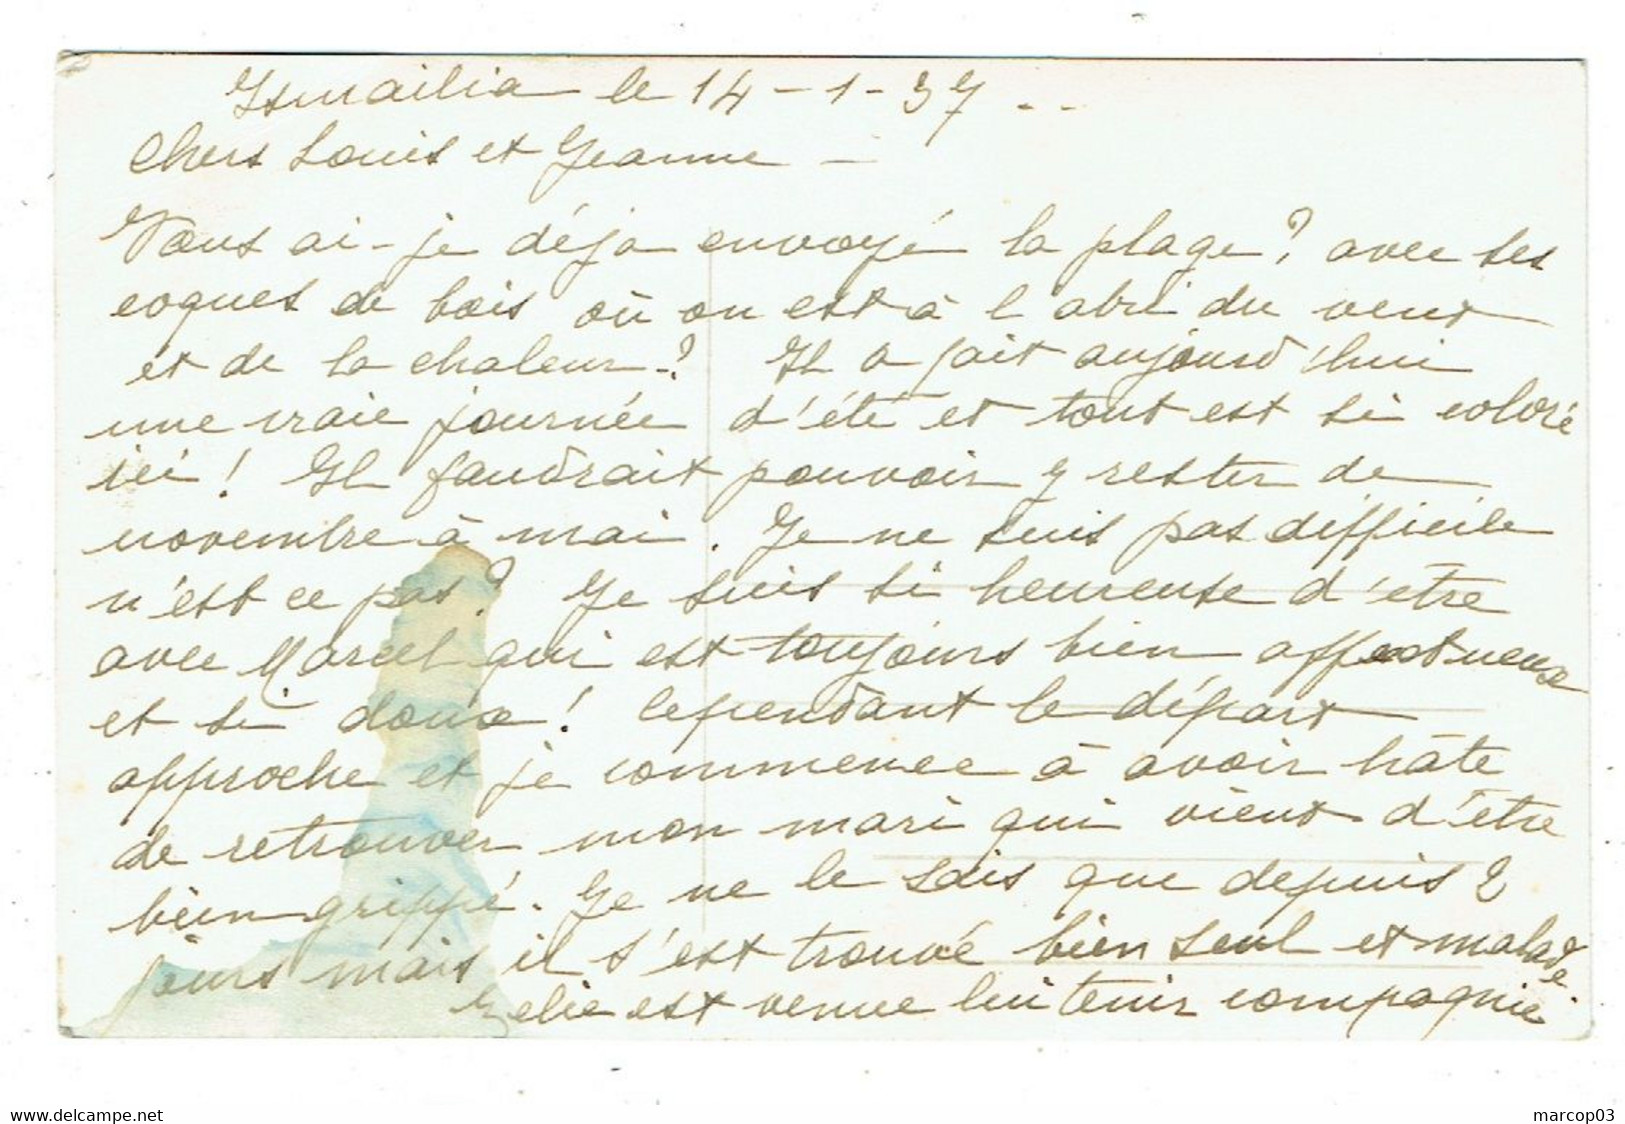 Ismailia le 14-1-37 ..
Chers Louis et Jeanne -
Vous ai-je déja envoyé la plage? avec ses
coques de bois où on est à l abri du vent
et de la chaleur-? Il a fait aujourd'hui
une vraie journée d'été et tout est si coloré
ici! Il faudrait pouvoir y rester de
novembre à mai. Je ne suis pas difficile
n'est ce pas? Je suis si heureuse d'être
avec Marcel qui est toujours bien affectueux
et si doux! Cependant le départ
approche et je commence à avoir hâte
de retrouver mon mari qui vient d'être
bien grippé. Je ne le sais que depuis 2
jours mais il s'est trouvé bien seul et malade.
est venue lui tenir compagnie
www.delcampe.net
marcop03